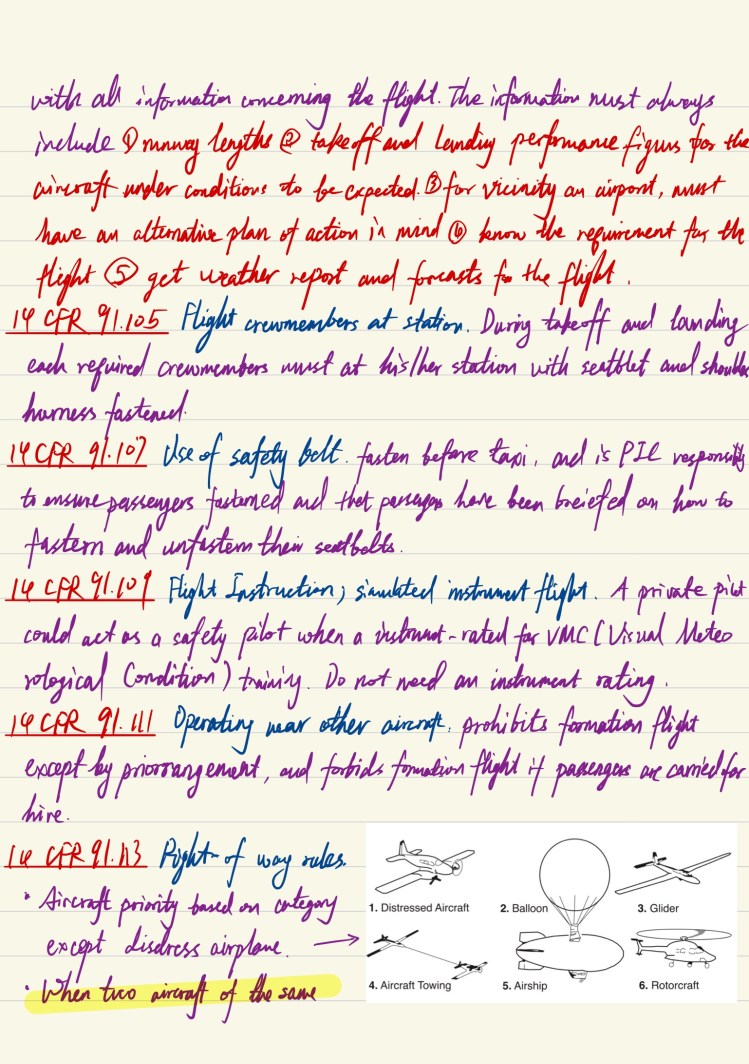 with all information concerning the flight. The information must always
include ① runway lengths ② takeoff and landing performance figurs for the
aircraft under conditions to be expected. ③ for vicinity an airport, must
have an alternative plan of action in mind ④ know the requirement for the
flight ⑤ get weather report and forcasts for the flight.
14 CFR 91.105 Flight crewmembers at station. During takeoff and landing
each required crewmembers must at his/her station with seatblet and shoulder
harness fastened.
14 CFR 91.107 Use of safety belt. fasten before taxi, and is PIC responsibility
to ensure passengers fastened and that passengers have been breiefed on how to
fastern and unfastern their seatbelts.
14 CFR 91.109 Flight Instruction; simulated instrument flight. A private pilot
could act as a safety pilot when a instrument-rated for VMC (Visual Meteo
rological Condition) training. Do not need an instrument rating.
14 CFR 91.111 Operating near other aircraft. prohibits formation flight
except by priorrangement, and forbids formation flight if passengers are carried for
hire.
14 CFR 91.113 Right-of way rules.
• Aircraft priority based on category
except disdress airplane. →
1. Distressed Aircraft
2. Balloon
3. Glider
4. Aircraft Towing
5. Airship
6. Rotorcraft
• When two aircraft of the same